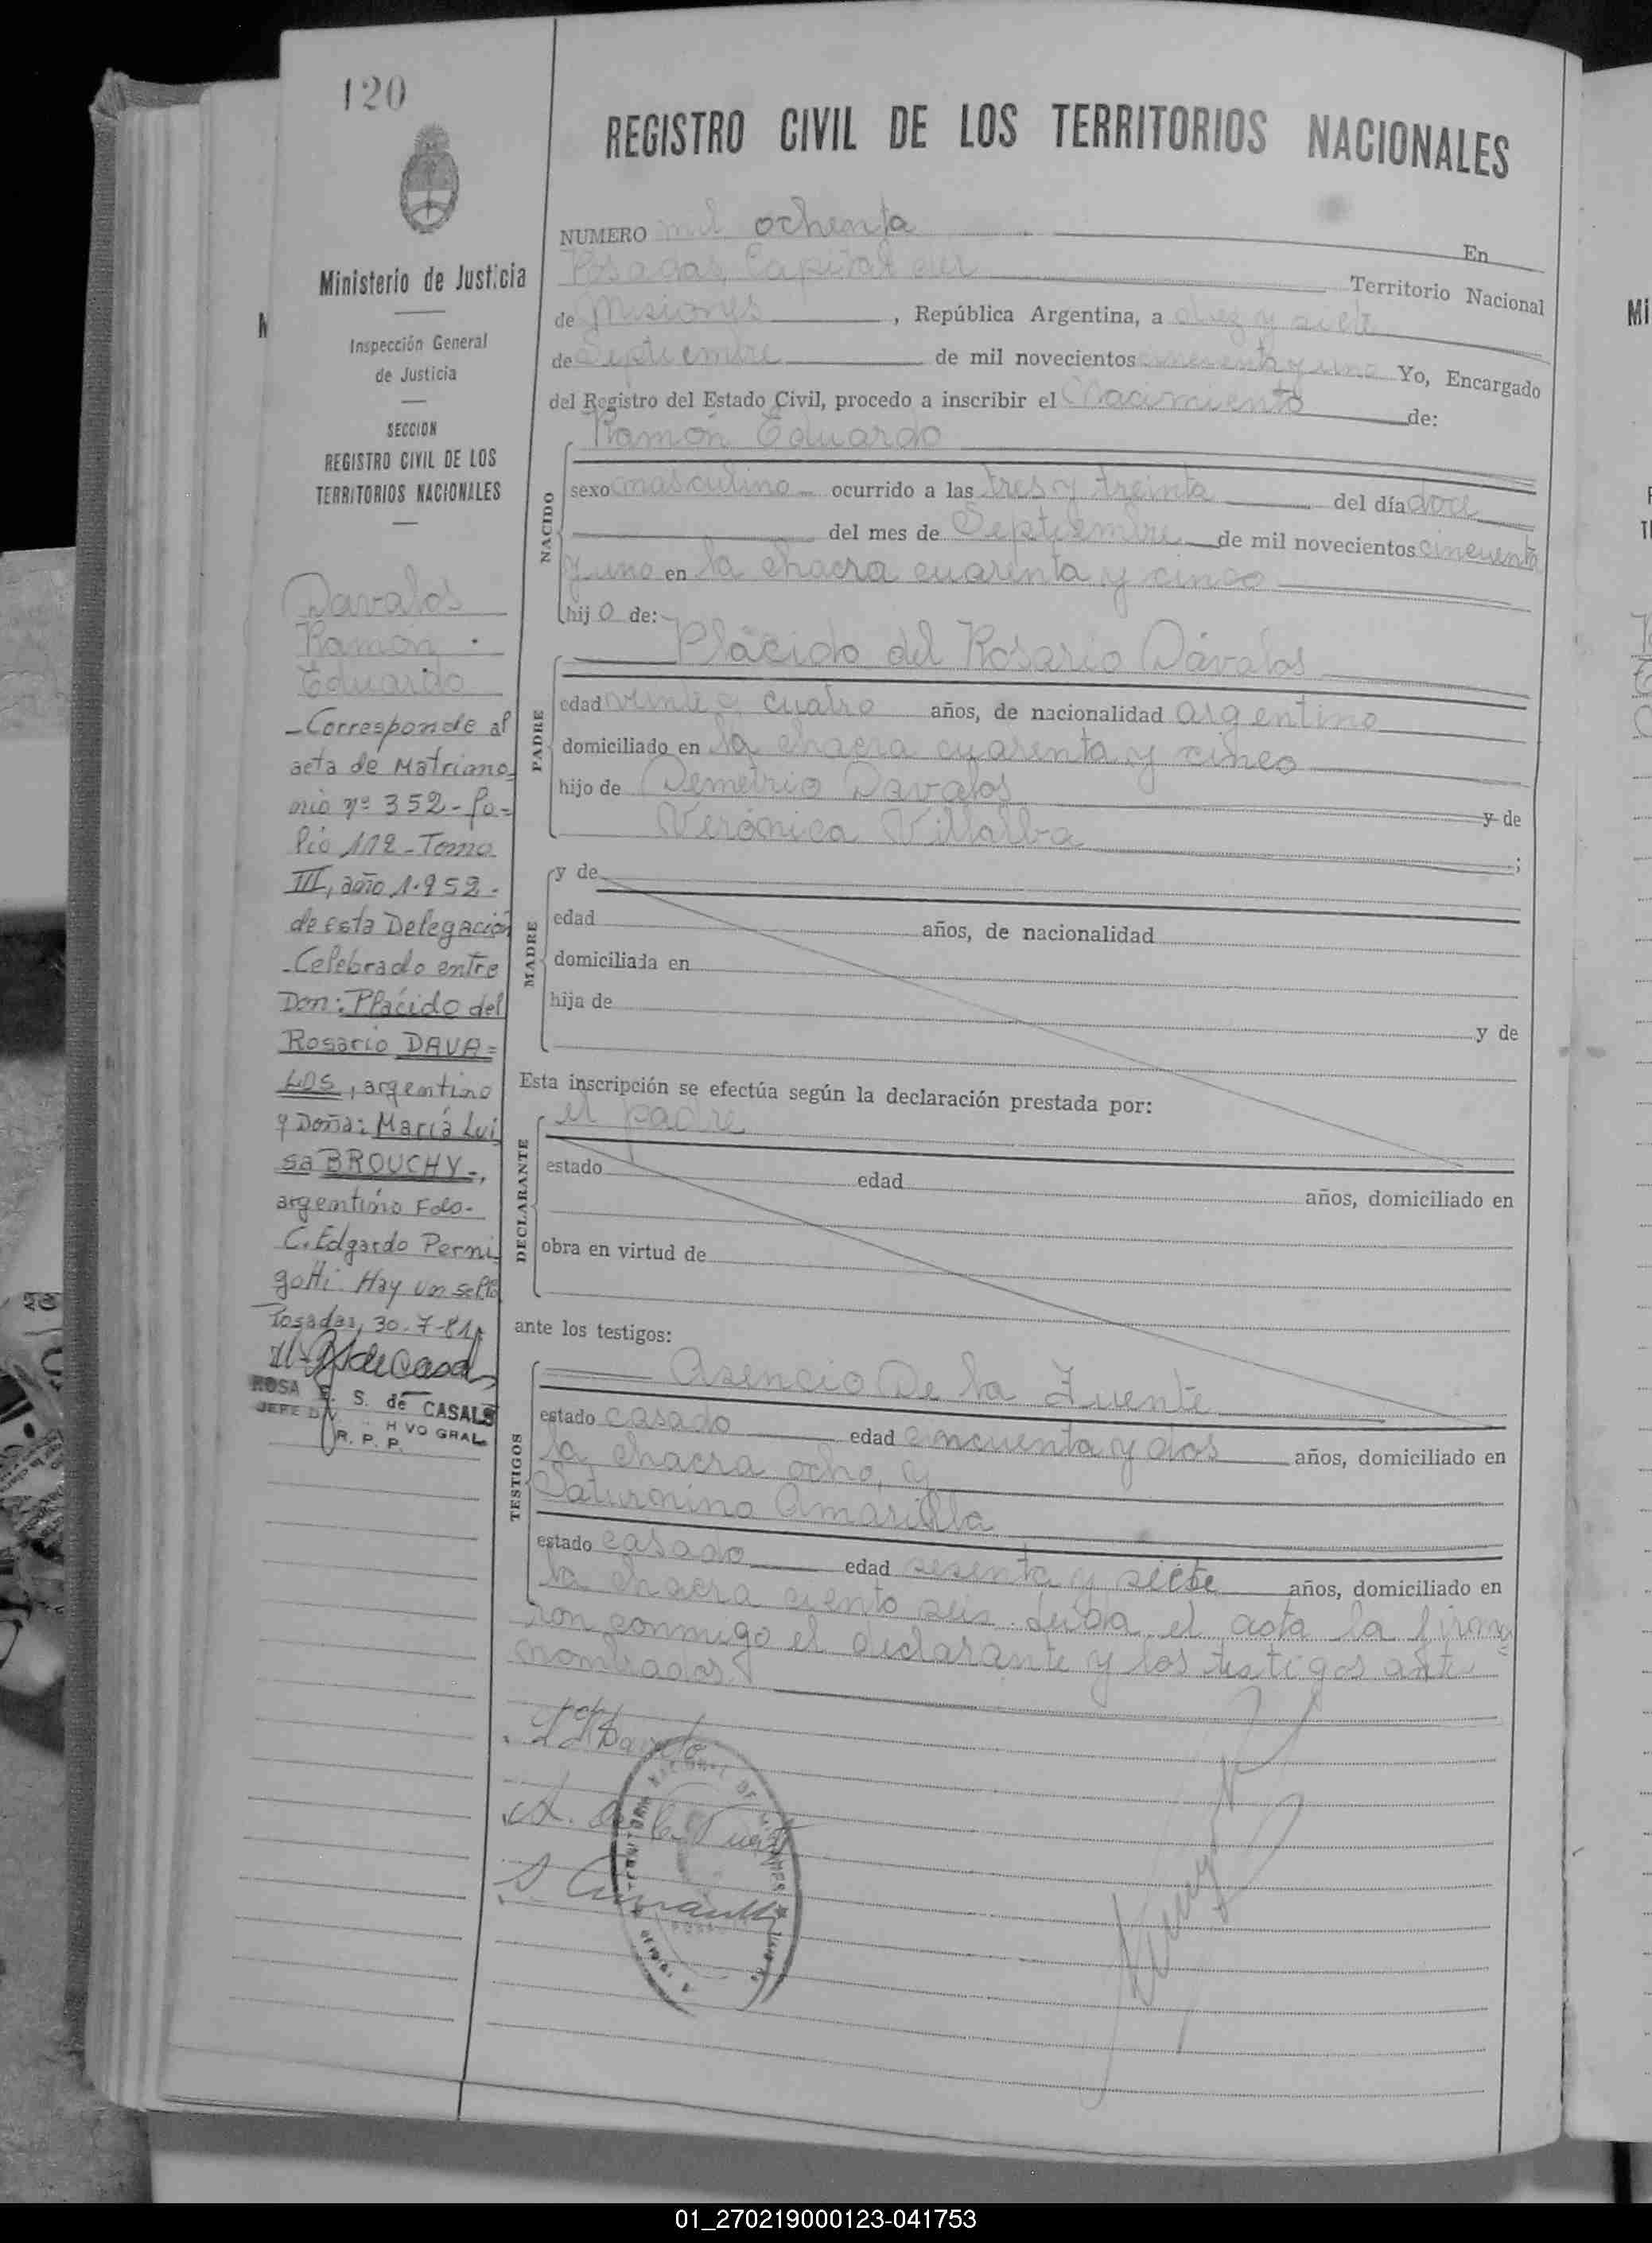 120
Ministerio de Justicia
Inspección General
de Justicia
SECCION
REGISTRO CIVIL DE LOS
TERRITORIOS NACIONALES
Davalos
Ramón
Eduardo
-Corresponde al
acta de Matrimo-
nio nº 352-Fo-
lio 112-Tomo
III, año 1.952-
de esta Delegación
-Celebrado entre
Don: Plácido del
Rosario DAVA=
LOS, argentino
y Doña: María Lui
sa BROUCHY-,
argentino Fdo-
C. Edgardo Perni
gotti. Hay un sello
Posadas, 30-7-81
ROSA E. S. de CASALS
JEFE DIV. HVO GRAL
R. P. P.
REGISTRO CIVIL DE LOS TERRITORIOS NACIONALES
NUMERO mil ochenta En
Posadas, Capital del Territorio Nacional
de Misiones, República Argentina, a diez y siete
de Septiembre de mil novecientos cincuenta y uno Yo, Encargado
del Registro del Estado Civil, procedo a inscribir el Nacimiento de:
NACIDO
Ramón Eduardo
sexo masculino ocurrido a las tres y treinta del día doce
del mes de Septiembre de mil novecientos cincuenta
y uno en la chacra cuarenta y cinco
hijo de:
PADRE
Plácido del Rosario Dávalos
edad veinte y cuatro años, de nacionalidad argentino
domiciliado en la chacra cuarenta y cinco
hijo de Demetrio Davalos y de
Verónica Villalba ;
MADRE
y de
edad años, de nacionalidad
domiciliada en
hija de y de
Esta inscripción se efectúa según la declaración prestada por:
DECLARANTE
el padre
estado edad años, domiciliado en
obra en virtud de
ante los testigos:
TESTIGOS
Asencio De la Fuente
estado casado edad cincuenta y dos años, domiciliado en
la chacra ocho, y
Saturnino Amarilla
estado casado edad sesenta y siete años, domiciliado en
la chacra ciento seis. Leída el acta la firma
ron conmigo el declarante y los testigos ante
nombrados.
A. de la Fuente
S Amarilla
01_270219000123-041753